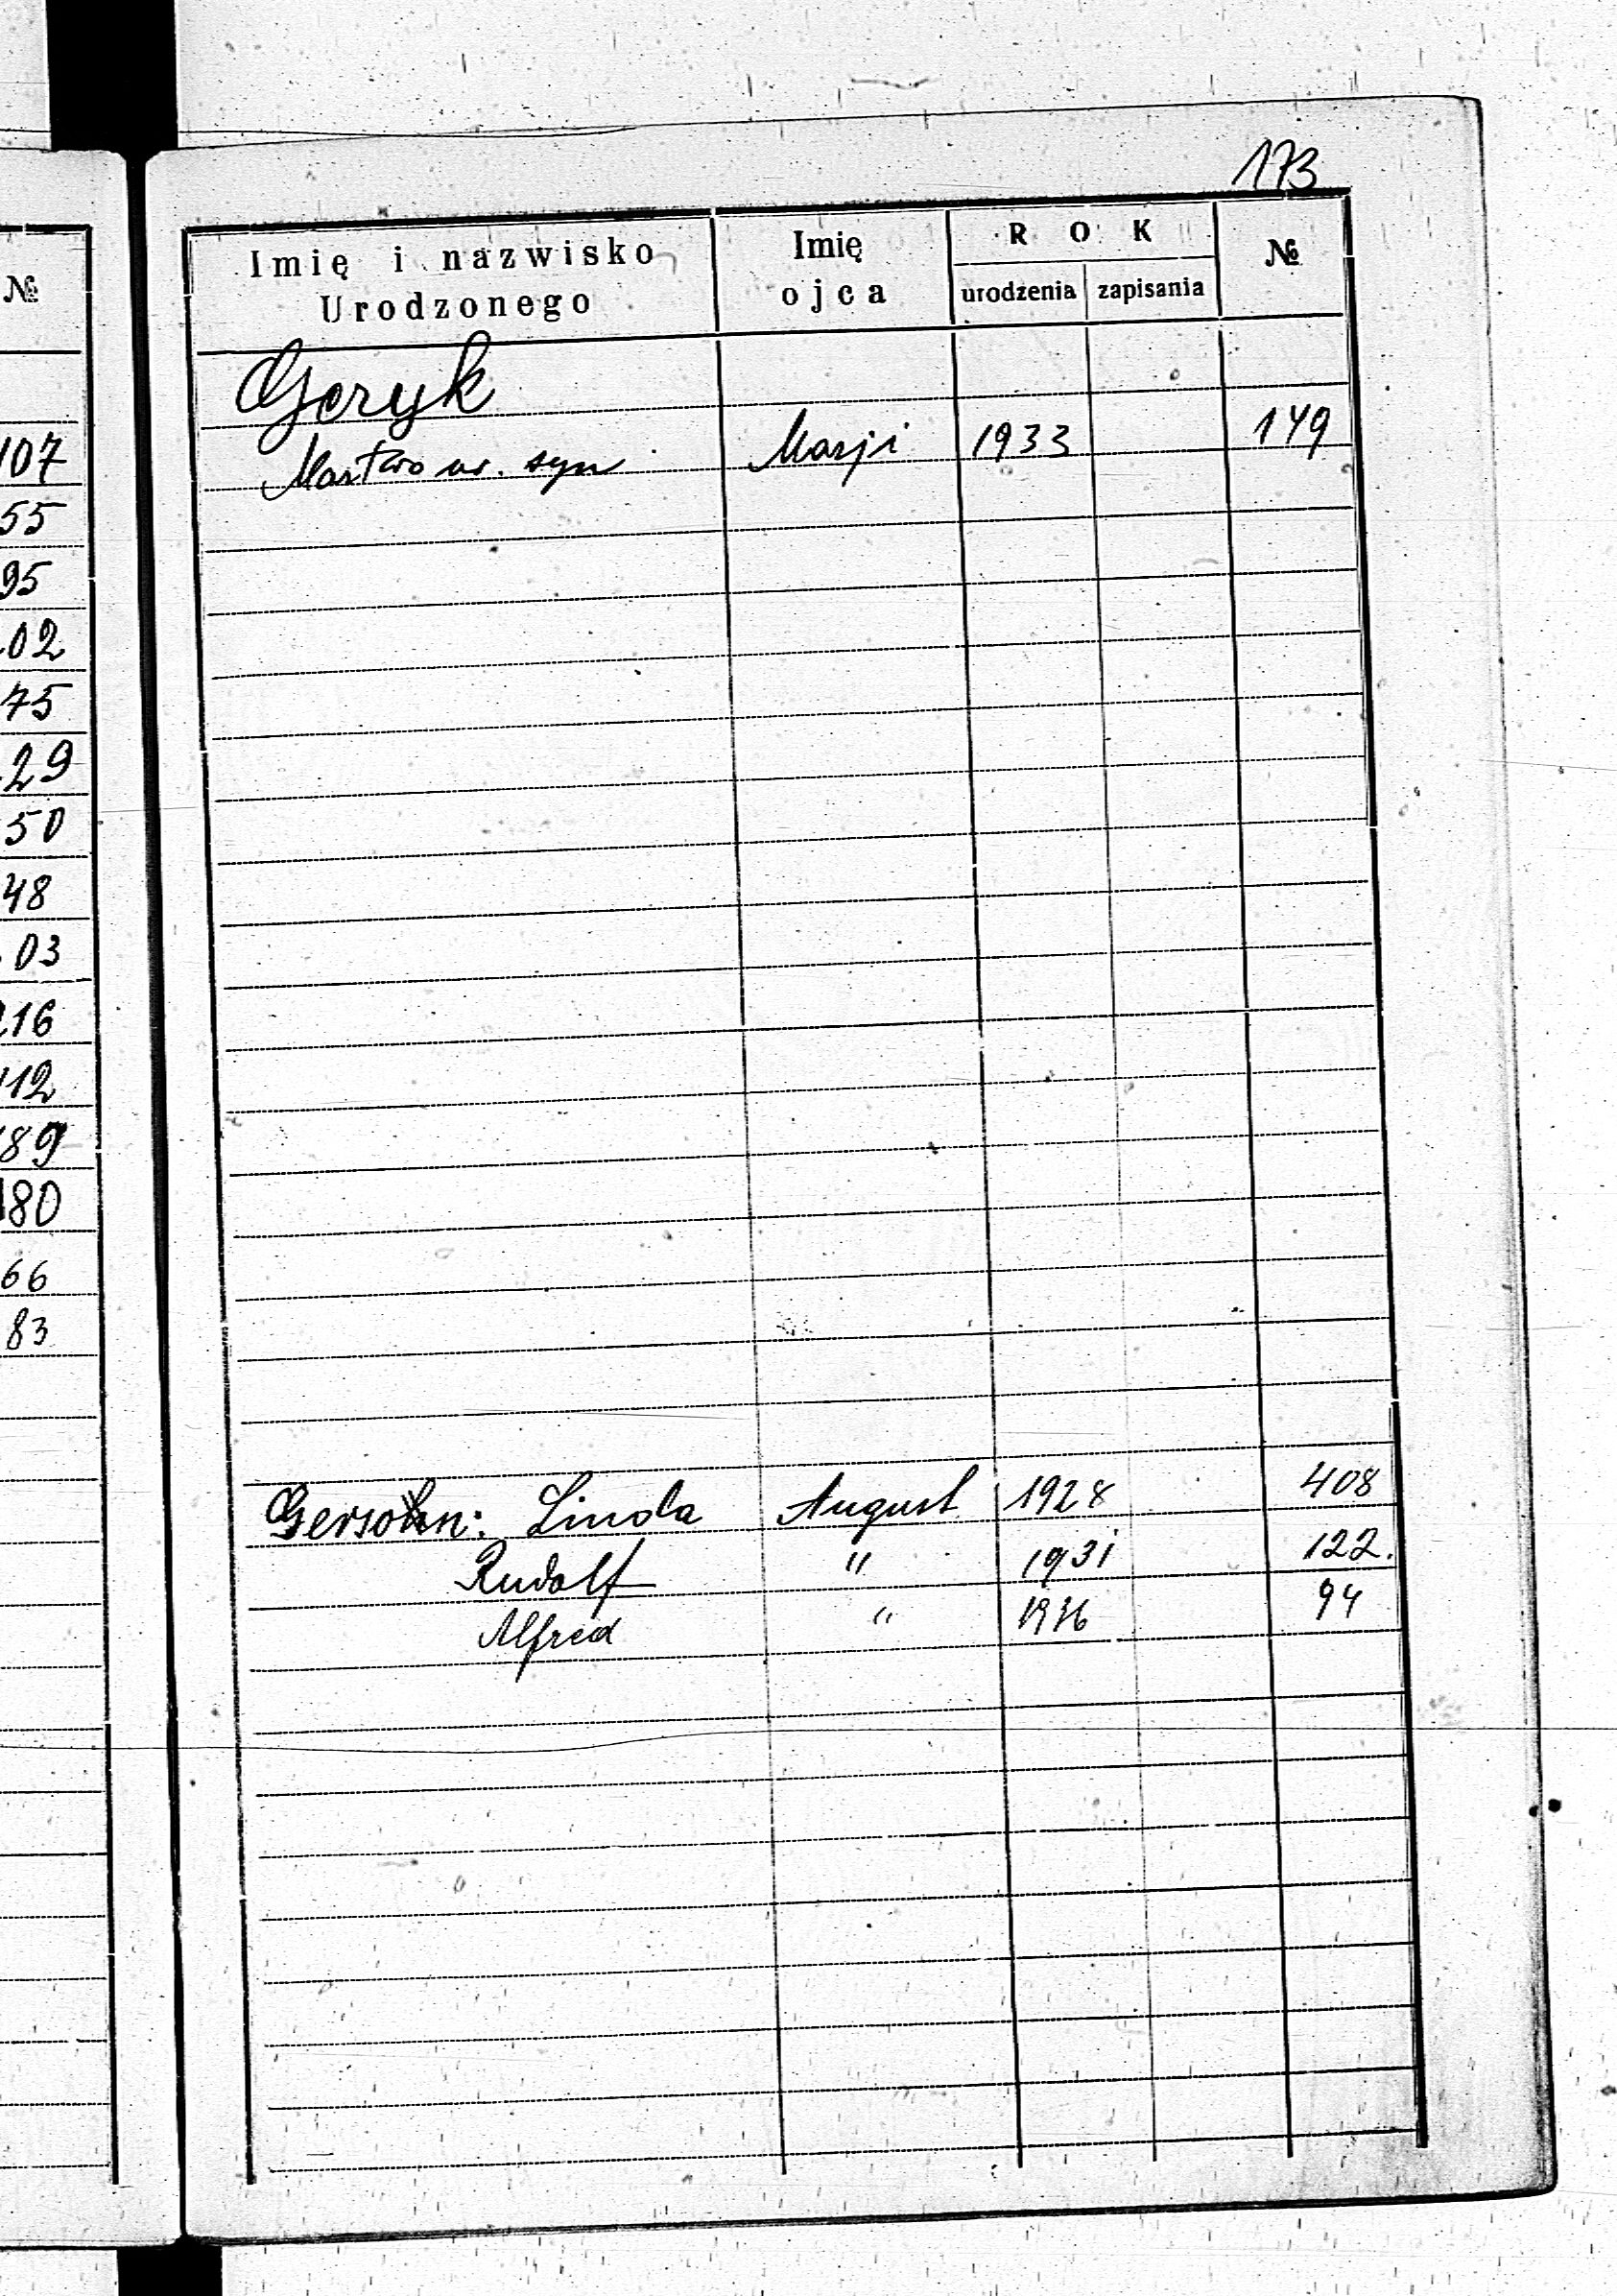 173
№
Imię i nazwisko Urodzonego
Imię ojca
ROK
urodzenia
zapisania
№
Geryk
Martwo ur. syn Marji 1933 149
Gersohn: Linda August 1928 408
Rudolf " 1931 122.
Alfred " 1936 94
107
55
95
02
75
29
50
48
03
216
112
189
180
66
83